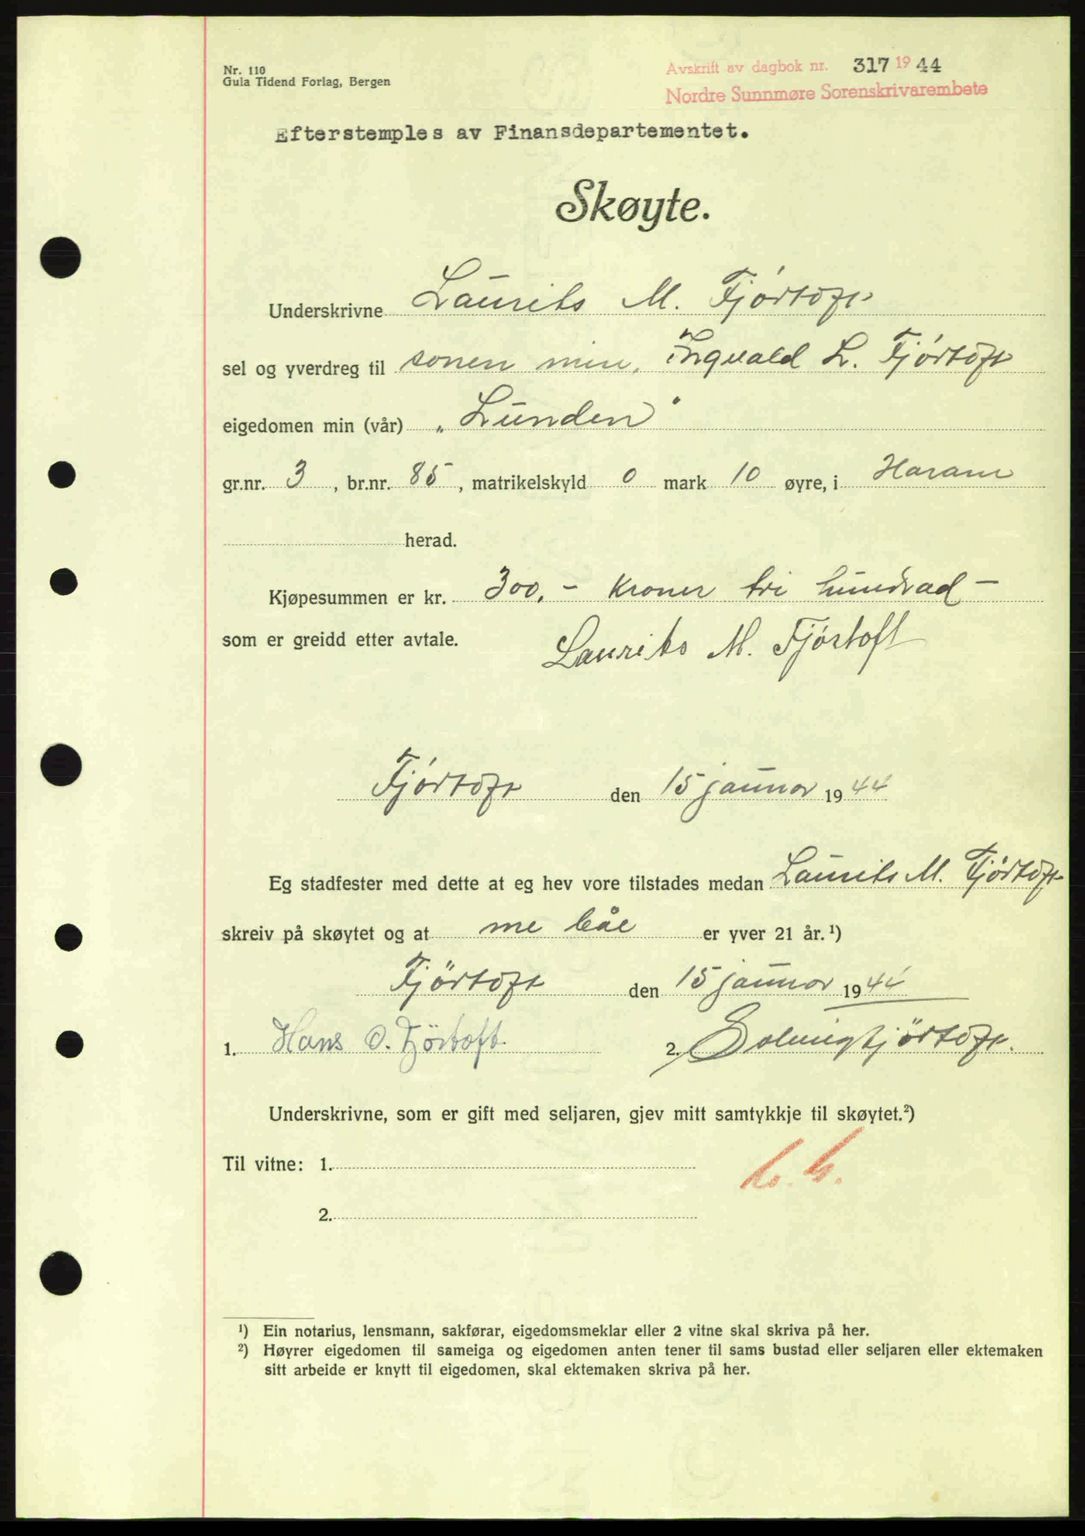 Nr. 110
Gula Tidend Forlag, Bergen
Avskrift av dagbok nr. 317 1944
Nordre Sunnmøre Sorenskrivarembete
Efterstemples av Finansdepartementet.
Skøyte.
Underskrivne Laurits M. Fjørtoft
sel og yverdreg til sonen min, Ingvald L. Fjørtoft
eigedomen min (vår) „Lunden"
gr.nr. 3, br.nr. 85, matrikelskyld 0 mark 10 øyre, i Haram
herad.
Kjøpesummen er kr. 300,- kroner tri hundrad -
som er greidd etter avtale.
Laurits M. Fjørtoft
Fjørtoft den 15 januar 1944
Eg stadfester med dette at eg hev vore tilstades medan Laurits M. Fjørtoft
skreiv på skøytet og at me båe er yver 21 år.¹)
Fjörtoft den 15 januar 1944
1. Hans O. Fjörtoft. 2. Solveig Fjörtoft.
Underskrivne, som er gift med seljaren, gjev mitt samtykkje til skøytet.²)
Til vitne: 1.
2.
¹) Ein notarius, lensmann, sakførar, eigedomsmeklar eller 2 vitne skal skriva på her.
²) Høyrer eigedomen til sameiga og eigedomen anten tener til sams bustad eller seljaren eller ektemaken
sitt arbeide er knytt til eigedomen, skal ektemaken skriva på her.